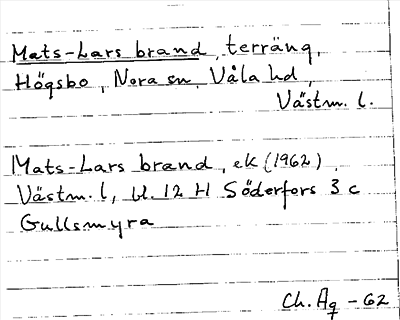 Mats-Lars brand, terräng,
Högsbo, Nora sn, Våla hd,
Västm. l.
Mats-Lars brand, ek (1962)
Västm. l, bl. 12 H Söderfors 3 c
Gullsmyra
Ch. Åg - 62